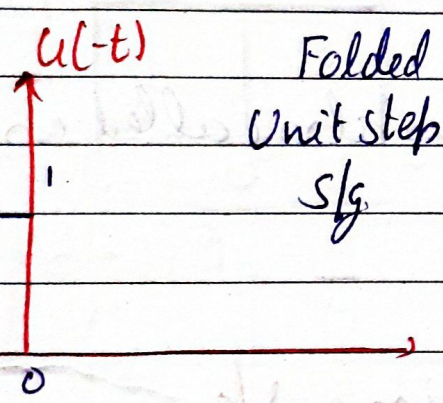 u(-t)
Folded
Unit step
S/g.
1
0